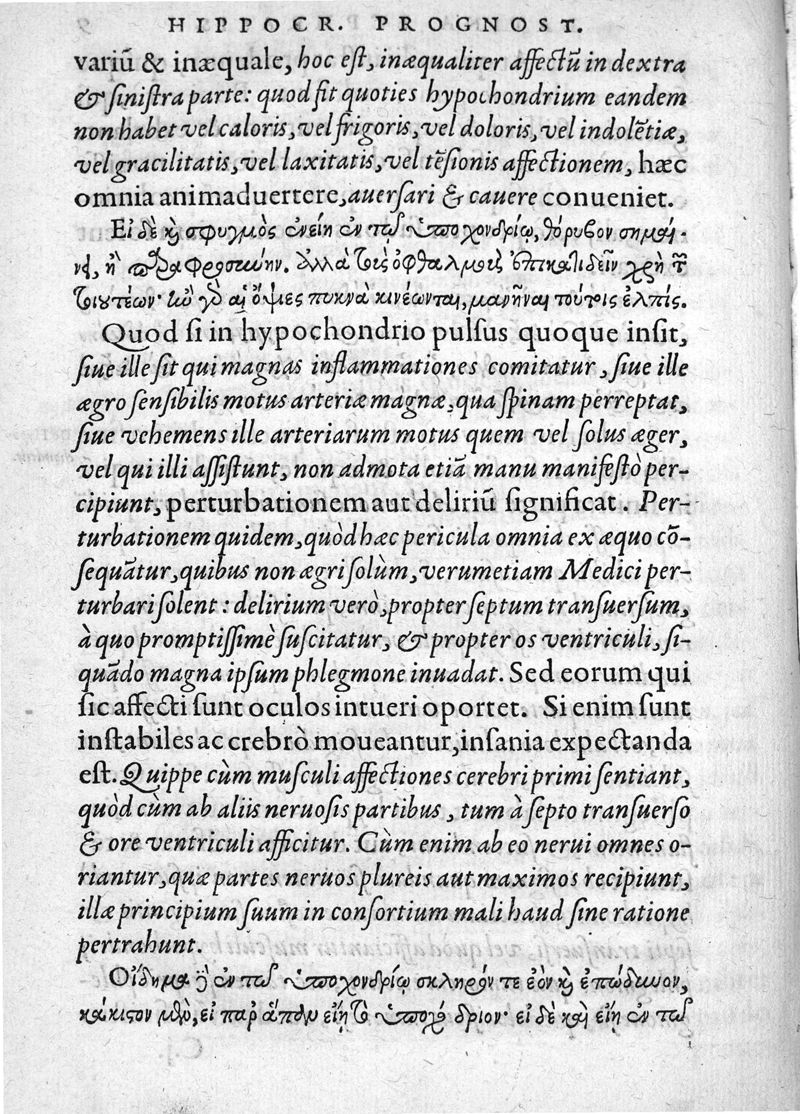 HIPPOCR. PROGNOST.
variū & inæquale, hoc eſt, inæqualiter affectū in dextra
& ſiniſtra parte: quod fit quoties hypochondrium eandem
non habet vel caloris, vel frigoris, vel doloris, vel indolētiæ,
vel gracilitatis, vel laxitatis, vel tēſionis affectionem, hæc
omnia animaduertere, auerſari & cauere conueniet.
Εἰ δὲ καὶ σφυγμὸς ἐνείη ἐν τῷ ὑποχονδρίῳ, θόρυβον σημαί-
νει, ἢ παραφροσύνην. ἀλλὰ τοῖς ὀφθαλμοῖς ἐπικατιδεῖν χρὴ τῶν
τοιουτέων· ἢν γὰρ αἱ ὄψιες πυκνὰ κινέωνται, μανῆναι τούτοις ἐλπίς.
Quod ſi in hypochondrio pulſus quoque inſit,
ſiue ille ſit qui magnas inflammationes comitatur, ſiue ille
ægro ſenſibilis motus arteriæ magnæ, qua ſpinam perreptat,
ſiue vehemens ille arteriarum motus quem vel ſolus æger,
vel qui illi aſſiſtunt, non admota etiā manu manifeſtò per-
cipiunt, perturbationem aut deliriū ſignificat. Per-
turbationem quidem, quòd hæc pericula omnia ex æquo cō-
ſequātur, quibus non ægri ſolùm, verumetiam Medici per-
turbari ſolent: delirium verò, propter ſeptum tranſuerſum,
à quo promptiſſimè ſuſcitatur, & propter os ventriculi, ſi-
quādo magna ipſum phlegmone inuadat. Sed eorum qui
ſic affecti ſunt oculos intueri oportet. Si enim ſunt
inſtabiles ac crebrò moueantur, inſania expectanda
eſt. Quippe cùm muſculi affectiones cerebri primi ſentiant,
quòd cùm ab aliis neruoſis partibus, tum à ſepto tranſuerſo
& ore ventriculi afficitur. Cùm enim ab eo nerui omnes o-
riantur, quæ partes neruos plureis aut maximos recipiunt,
illæ principium ſuum in conſortium mali haud ſine ratione
pertrahunt.
Οἴδημα δὲ ἐν τῷ ὑποχονδρίῳ σκληρόν τε ἐὸν καὶ ἐπώδυνον,
κάκιστον μὲν, εἰ παρ' ἅπαν εἴη τὸ ὑποχόνδριον· εἰ δὲ καὶ εἴη ἐν τῷ
C.j.